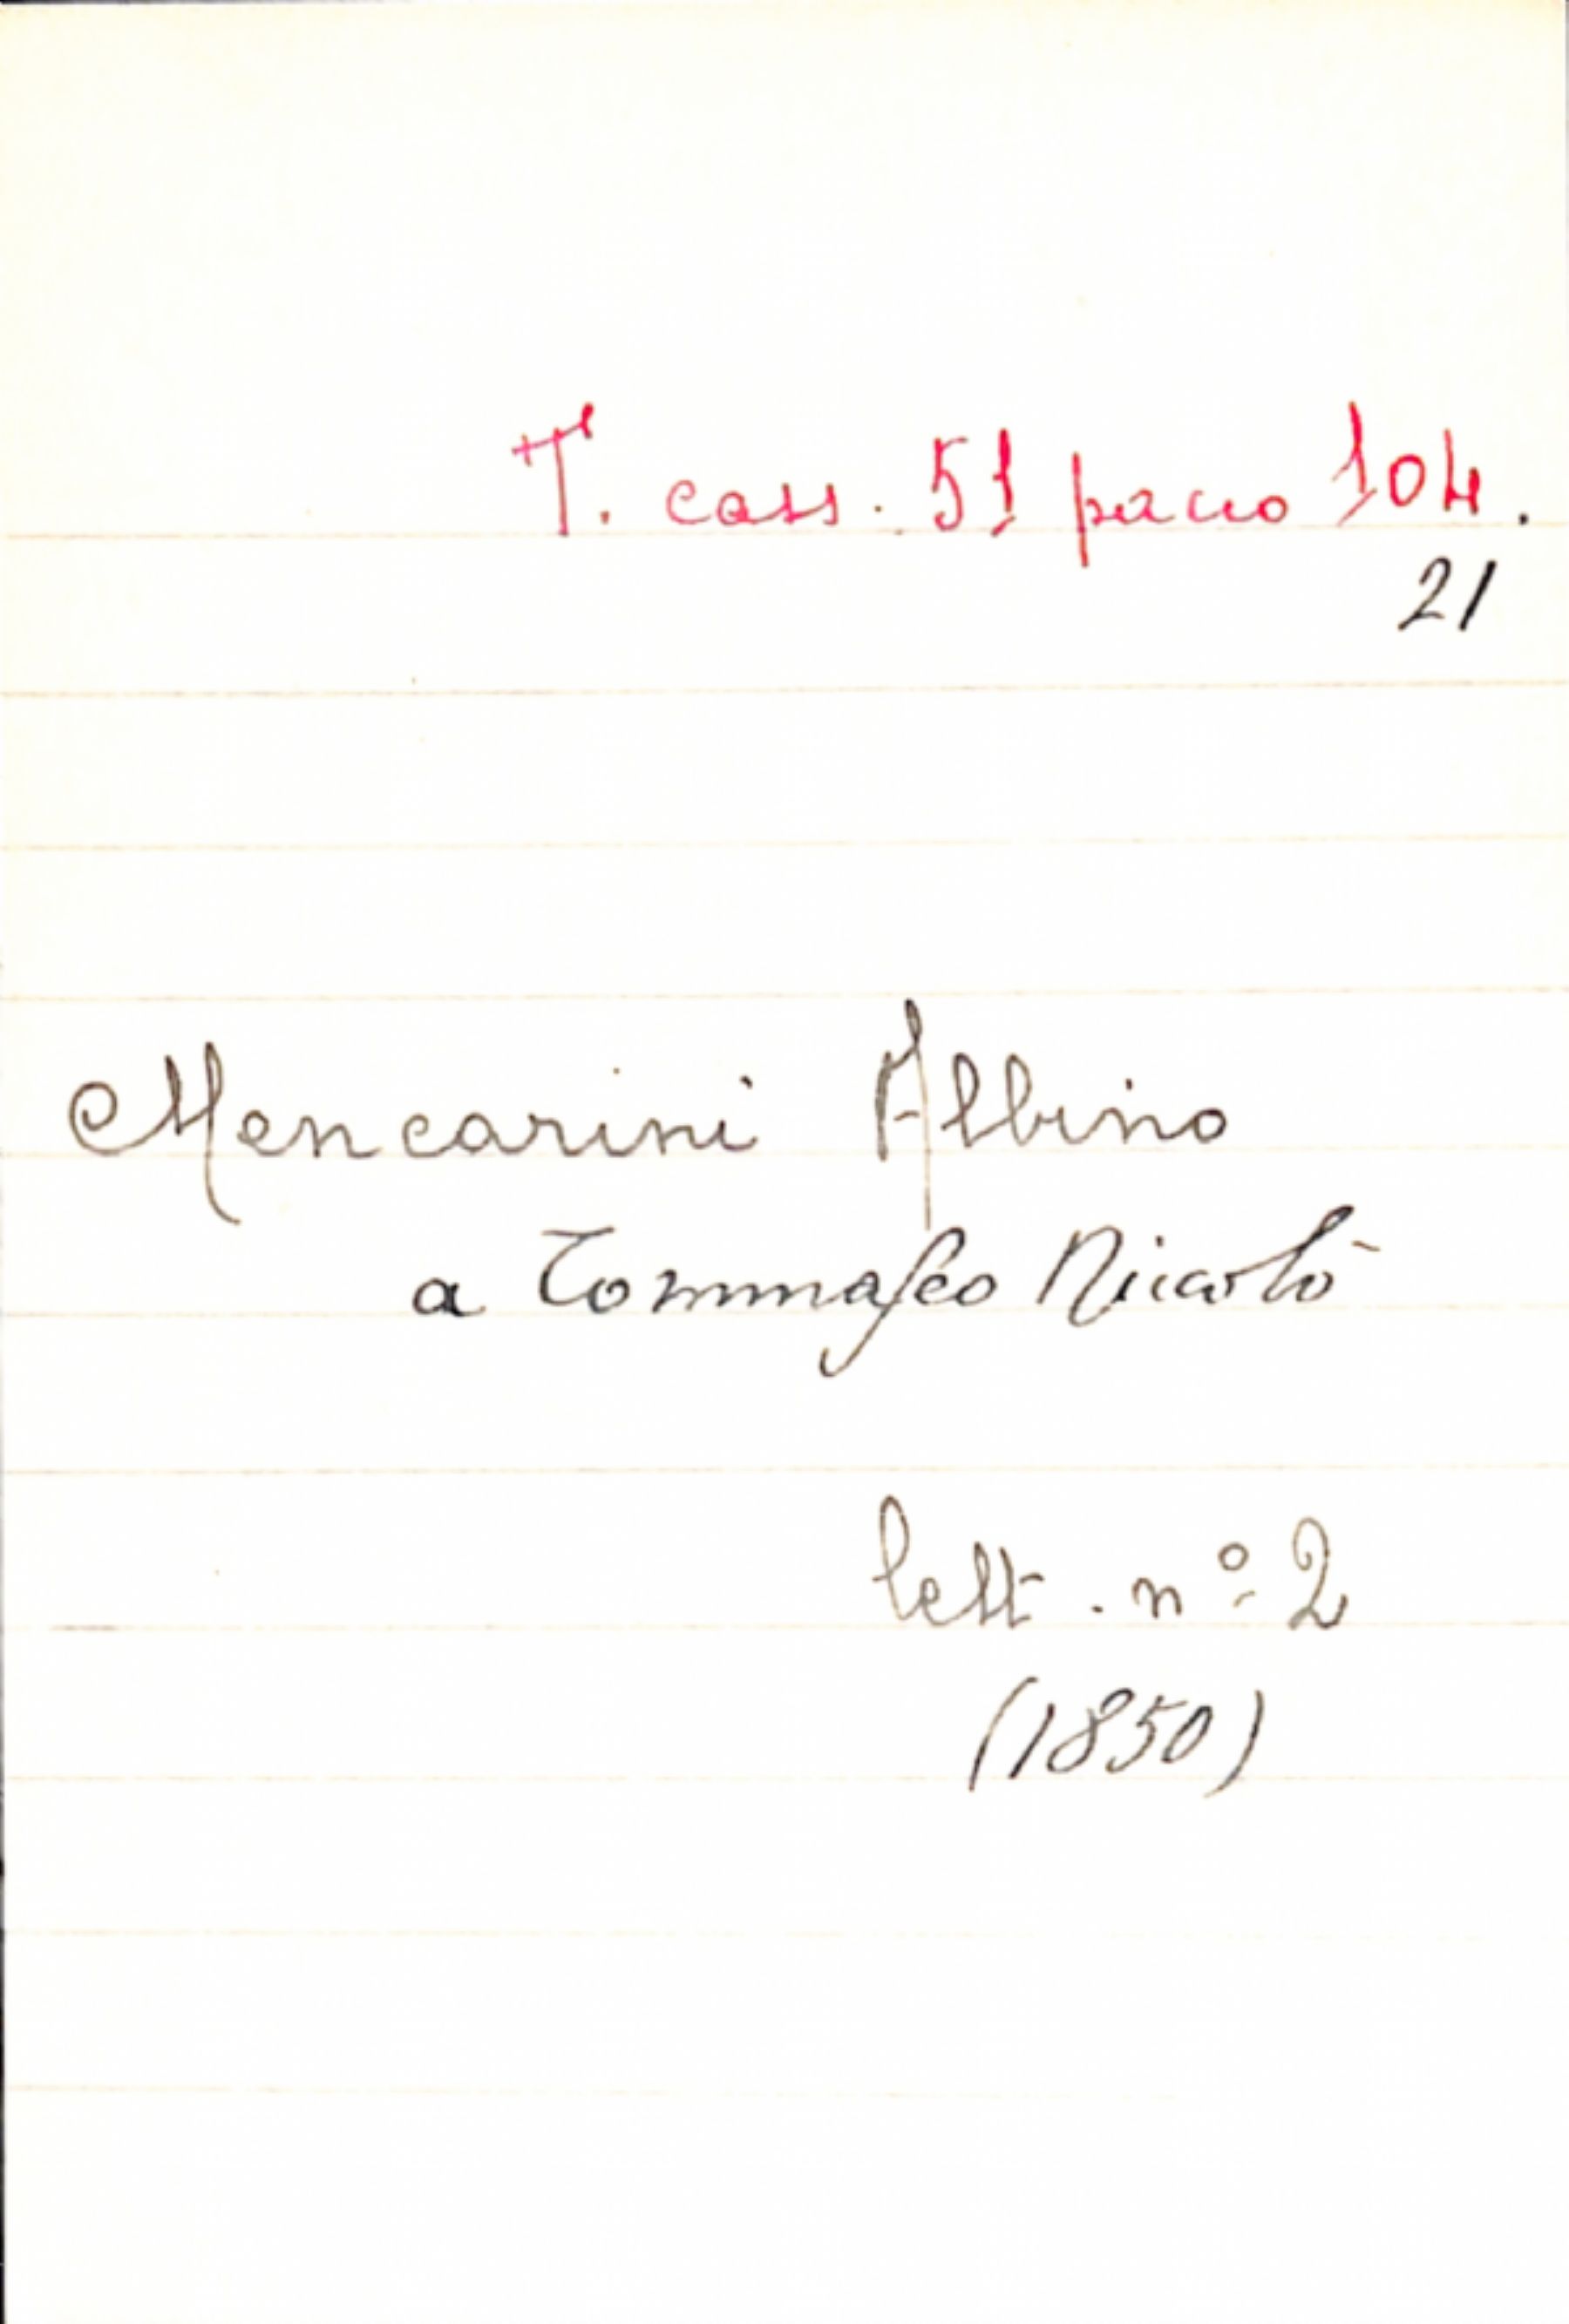 T. cass. 51 pacco 104.
21
Mencarini Albino
a Tommaseo Niccolò
lett. nº 2
(1850)